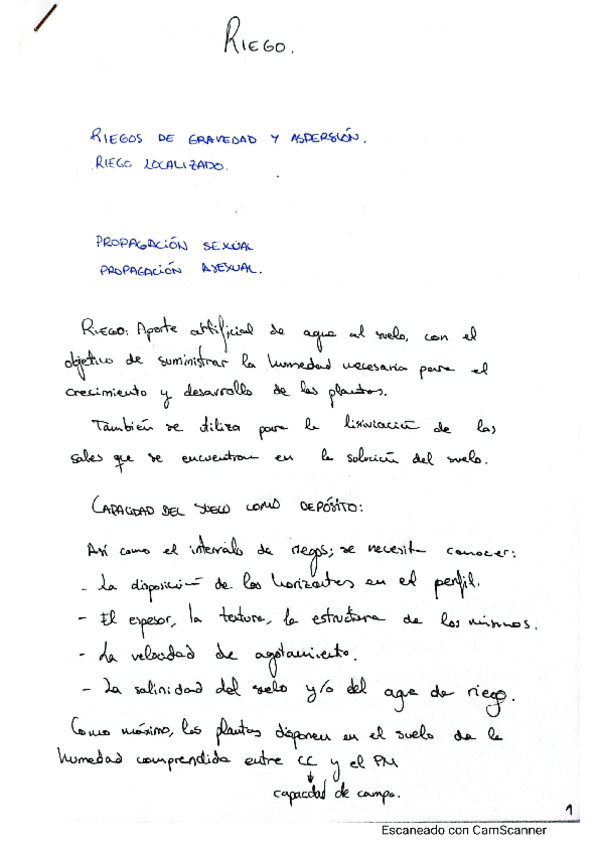 RIEGO.
RIEGOS DE GRAVEDAD Y ASPERSIÓN.
RIEGO LOCALIZADO.
PROPAGACIÓN SEXUAL
PROPAGACIÓN ASEXUAL.
RIEGO: Aporte artificial de agua al suelo, con el
objetivo de suministrar la humedad necesaria para el
crecimiento y desarrollo de las plantas.
También se utiliza para la lixiviación de las
sales que se encuentran en la solución del suelo.
CAPACIDAD DEL SUELO COMO DEPÓSITO:
Así como el intervalo de riegos; se necesita conocer:
- La disposición de los horizontes en el perfil.
- El espesor, la textura, la estructura de los mismos.
- La velocidad de agotamiento.
- La salinidad del suelo y/o del agua de riego.
Como máximo, las plantas disponen en el suelo de la
humedad comprendida entre CC y el PM
capacidad de campo.
1
Escaneado con CamScanner